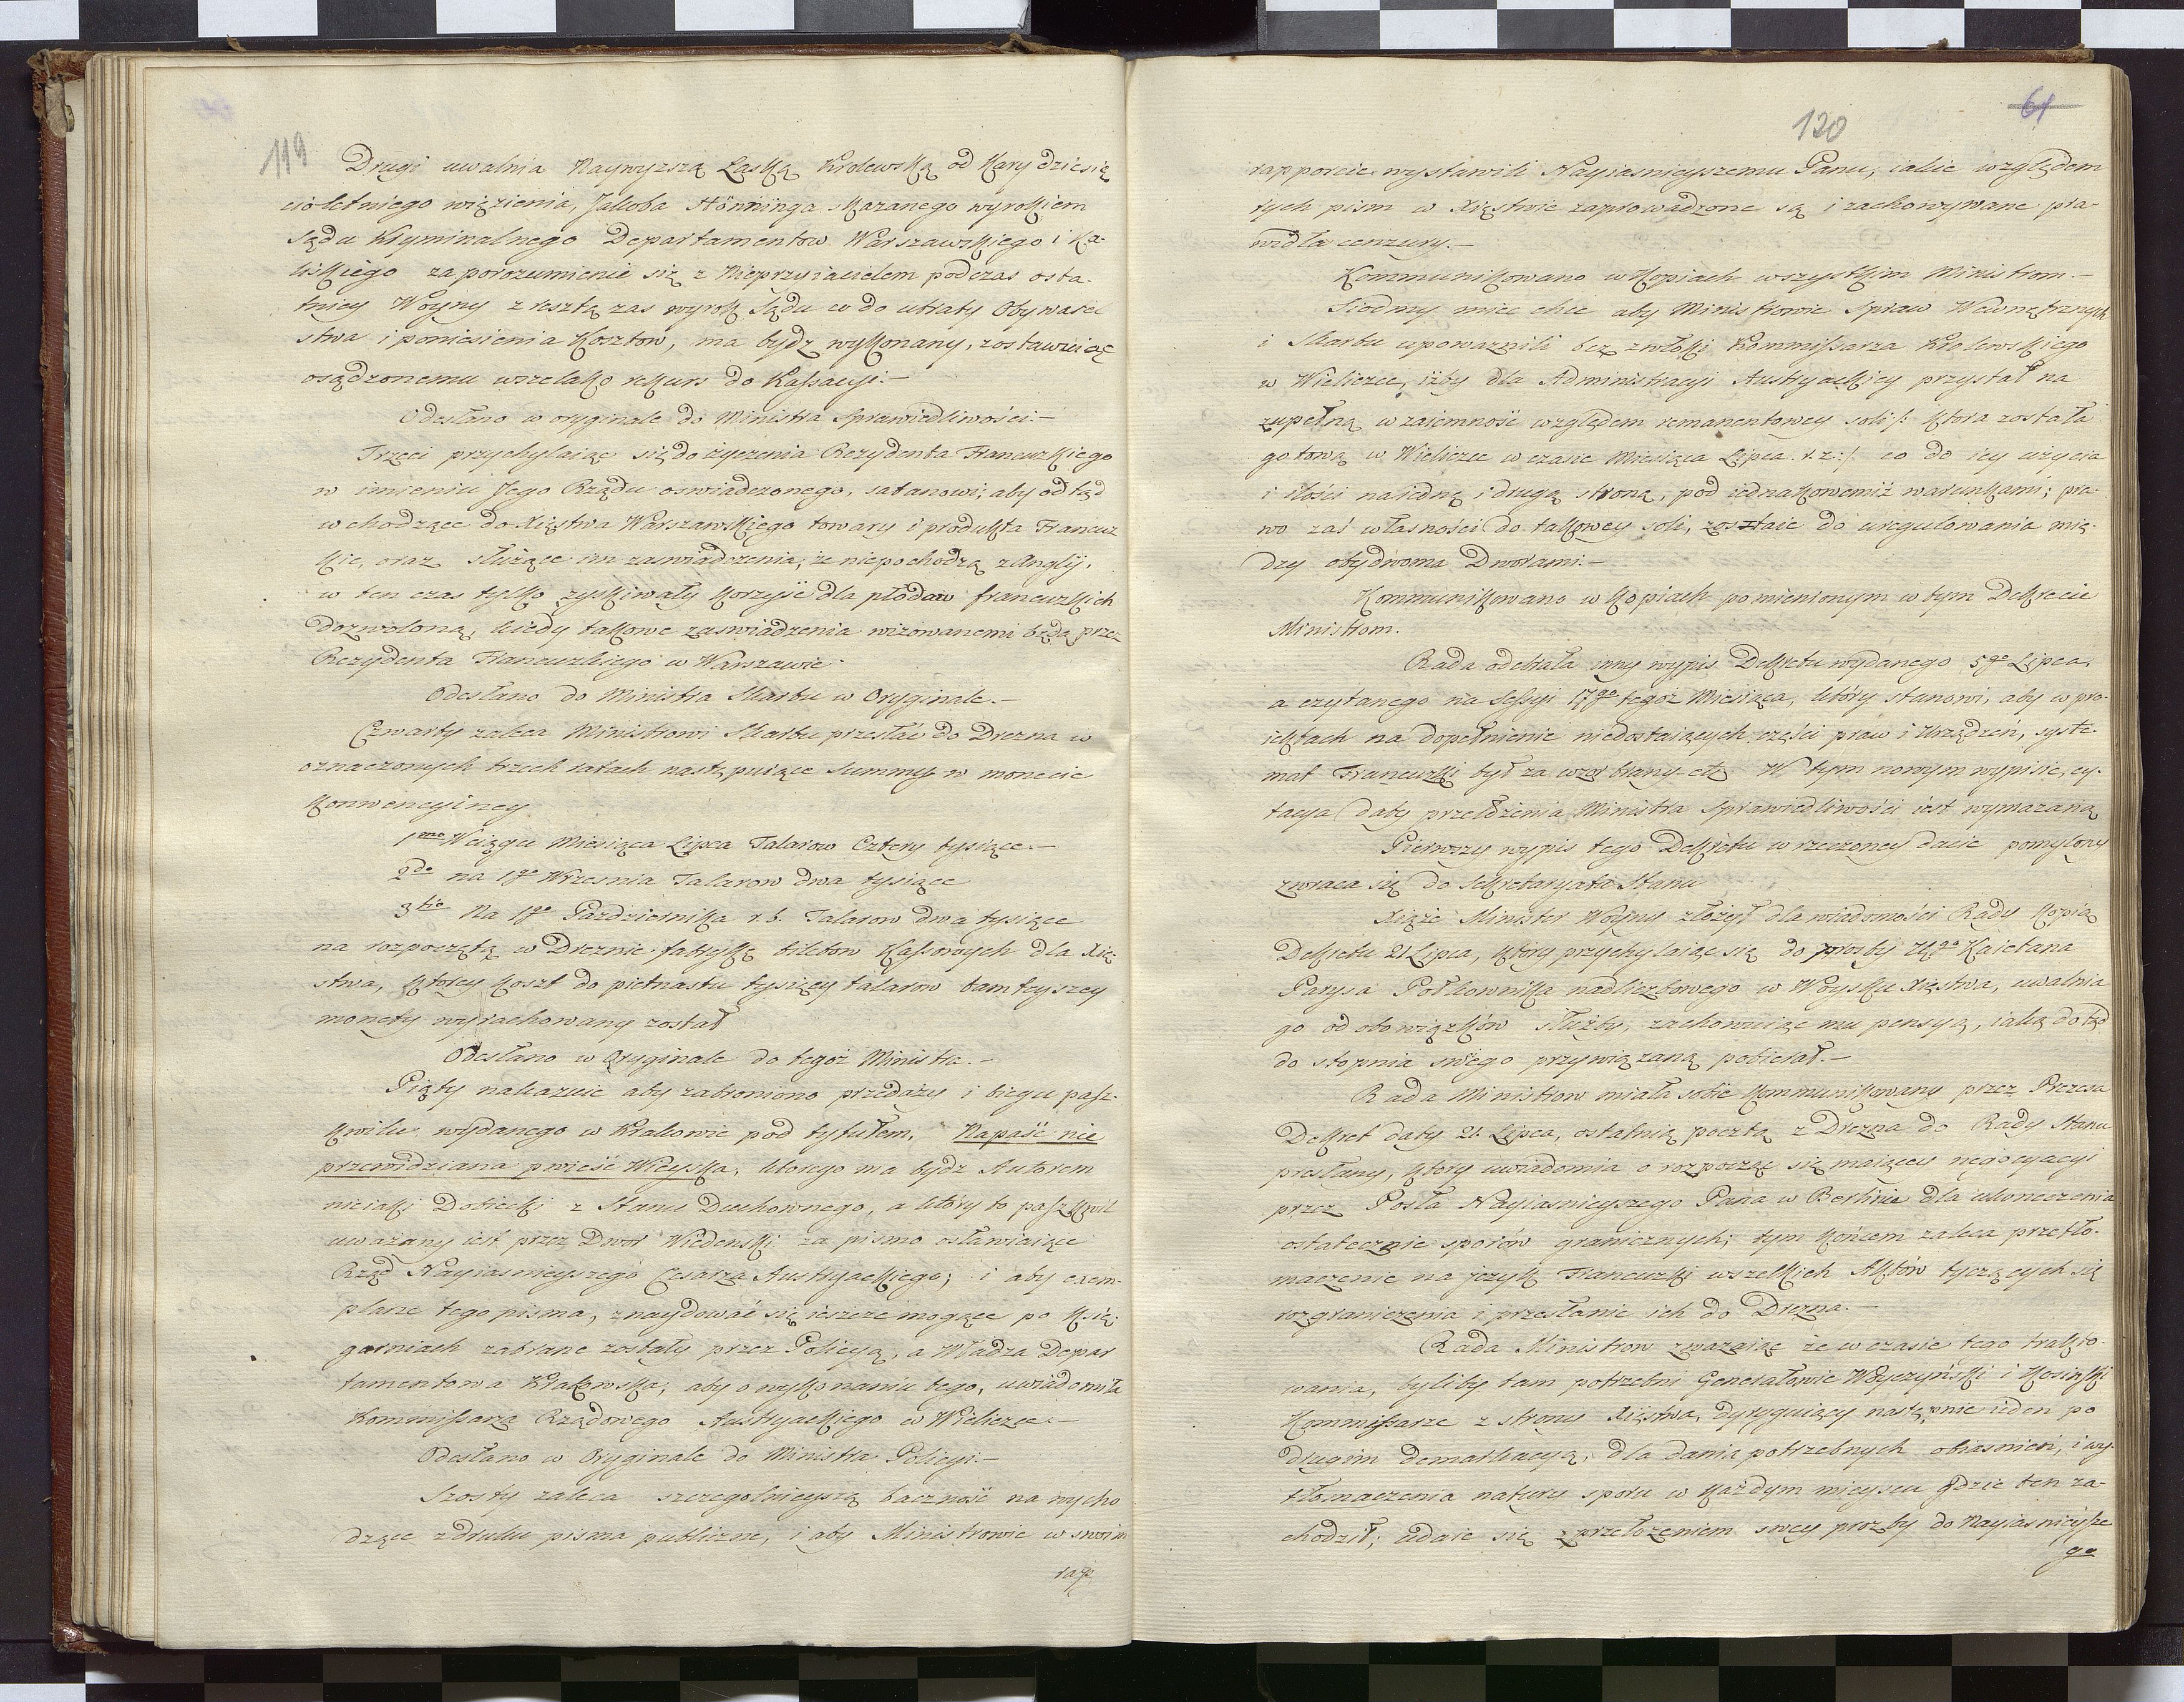 119
Drugi uwalnia Naywyzszą Łaską Krolewską od Kary dziesię
cioletniego więzienia, Jakoba Hönninga skazanego wyrokiem
Sądu Kryminalnego Departamentow Warszawskiego i Ka-
liskiego za porozumienie się z Nieprzyiacielem podczas osta-
tniey Woyny z resztą zas wyrok Sądu co do utraty Obywatel
stwa i poniesienia Kosztow, ma bydź wykonany, zostawuiąc
osądzonemu wszelako rekurs do Kassacyi.-
Odesłano w oryginale do Ministra Sprawiedliwości.-
Trzeci przychylaiąc się do życzenia Rezydenta Francuzkiego
w imieniu Jego Rządu oswiadczonego, satanowi; aby odtąd
wchodzące do Xięstwa Warszawskiego towary i produkta Francuz
kie, oraz służące im zaswiadczenia, że niepochodzą z Anglij,
w ten czas tylko zyskiwały korzyść dla płodow francuzkich
dozwoloną, kiedy takowe zaswiadzenia wizowanemi będą przez
Rezydenta Francuzkiego w Warszawie.
Odesłano do Ministra Skarbu w Oryginale.-
Czwarty zaleca Ministrowi Skarbu przesłać do Drezna w
oznaczonych trzech ratach następuiące Summy w monecie
konwencyiney
1mo W ciągu Miesiąca Lipca Talarow Cztery tysiące.-
2do na 1go Wrzesnia Talarow dwa tysiące
3tio Na 1go Pazdziernika r. b. Talarow dwa tysiące
na rozpoczętą w Dreznie fabrykę biletow Kassowych dla Xię-
stwa, ktorey koszt do pietnastu tysięcy talarow tamteyszey
monety wyrachowany został
Odesłano w Oryginale do tegoż Ministra.-
Piąty nakazuie aby zabroniono przedaży i biegu pasz-
kwilu wydanego w Krakowie pod tytułem, Napaść nie
przewidziana powieść Wieyska, ktorego ma bydź Autorem
nieiaki Dobiecki z Stanu Duchownego, a który to paszkwil
uważany iest przez Dwor Wiedenski za pismo osławiaiące
Rząd Nayiasnieyszego Cesarza Austryackiego; i aby exem-
plarze tego pisma, znaydować się ieszcze mogące po Księ-
garniach zabrane zostały przez Policyą, a Władza Depar
tamentowa Krakowska, aby o wykonaniu tego, uwiadomiła
Kommissarza Rządowego Austryackiego w Wieliczce.-
Odesłano w Oryginale do Ministra Policyi.-
Szosty zaleca szczegolnieyszą baczność na wycho
dzące z druku pisma publiczne, i aby Ministrowie w swoim
rap
61
120
rapporcie wystawili Nayiasnieyszemu Panu, iakie względem
tych pism w Xięstwie zaprowadzone są i zachowywane pra-
widła cenzury.-
Kommunikowano w Kopiach wszystkim Ministrom.-
Siodmy miec chce aby Ministrowie Spraw Wewnętrznych
i Skarbu upowaznili bez zwłoki Kommissarza Krolewskiego
w Wieliczce, iżby dla Administracyi Austryackiey przystał na
zupełną wzaiemność względem remanentowey soli /: ktora została
gotową w Wieliczce w czasie Miesiąca Lipca r. z. :/ co do iey użycia
i ilości na iedną i drugą stronę, pod iednakowemiż warunkami; pra-
wo zaś własności do takowey soli, zostaie do uregulowania mię-
dzy obydwoma Dworami.-
Kommunikowano w Kopiach pomienionym w tym Dekrecie
Ministrom.
Rada odebrała inny wypis Dekretu wydanego 5go Lipca,
a czytanego na Sessyi 17go tegoż Miesiąca, który stanowi, aby w pro-
iektach na dopełnienie niedostaiących części praw i Urządzeń, syste-
mat Francuzki był za wzor brany etc. W tym nowym wypisie, cy-
tacya daty przełożenia Ministra Sprawiedliwości iest wymazana
Pierwszy wypis tego Dekretu w rzeczoney dacie pomylony
zwraca się do Sekretaryata Stanu
Xiąże Minister Woyny złożył dla wiadomości Rady kopią
Dekretu 21 Lipca, ktory przychylaiąc się do prosby Ur. Kaietana
Parysa Połkownika nadliczbowego w Woysku Xięstwa, uwalnia
go od obowiązków służby, zachowuiąc mu pensyą, iaką dotąd
do stopnia swego przywiązaną pobierał.-
Rada Ministrow miała sobie kommunikowany przez Prezesa
Dekret daty 21. Lipca, ostatnią pocztą z Drezna do Rady Stanu
przesłany, ktory uwiadomia o rozpocząc się maiącey negocyacyi
przez Posła Nayiasnieyszego Pana w Berlinie dla ukonczenia
ostatecznie sporów granicznych; tym końcem zaleca przetło-
maczenie na język Francuzki wszelkich Aktów tyczących się
rozgraniczenia i przesłanie ich do Drezna.-
Rada Ministrow zważaiąc że w czasie tego trakto-
wania, byliby tam potrzebni Generałowie Woyczyński i Kosinski
Kommissarze z strony Xięstwa, dyryguiący następnie ieden po
drugim demarkacyą, dla dania potrzebnych obiasnień, i wy-
tłomaczenia natury sporu w każdym mieyscu gdzie ten za-
chodził; udaie się z przełożeniem swey prozby do Nayiasnieysze
go